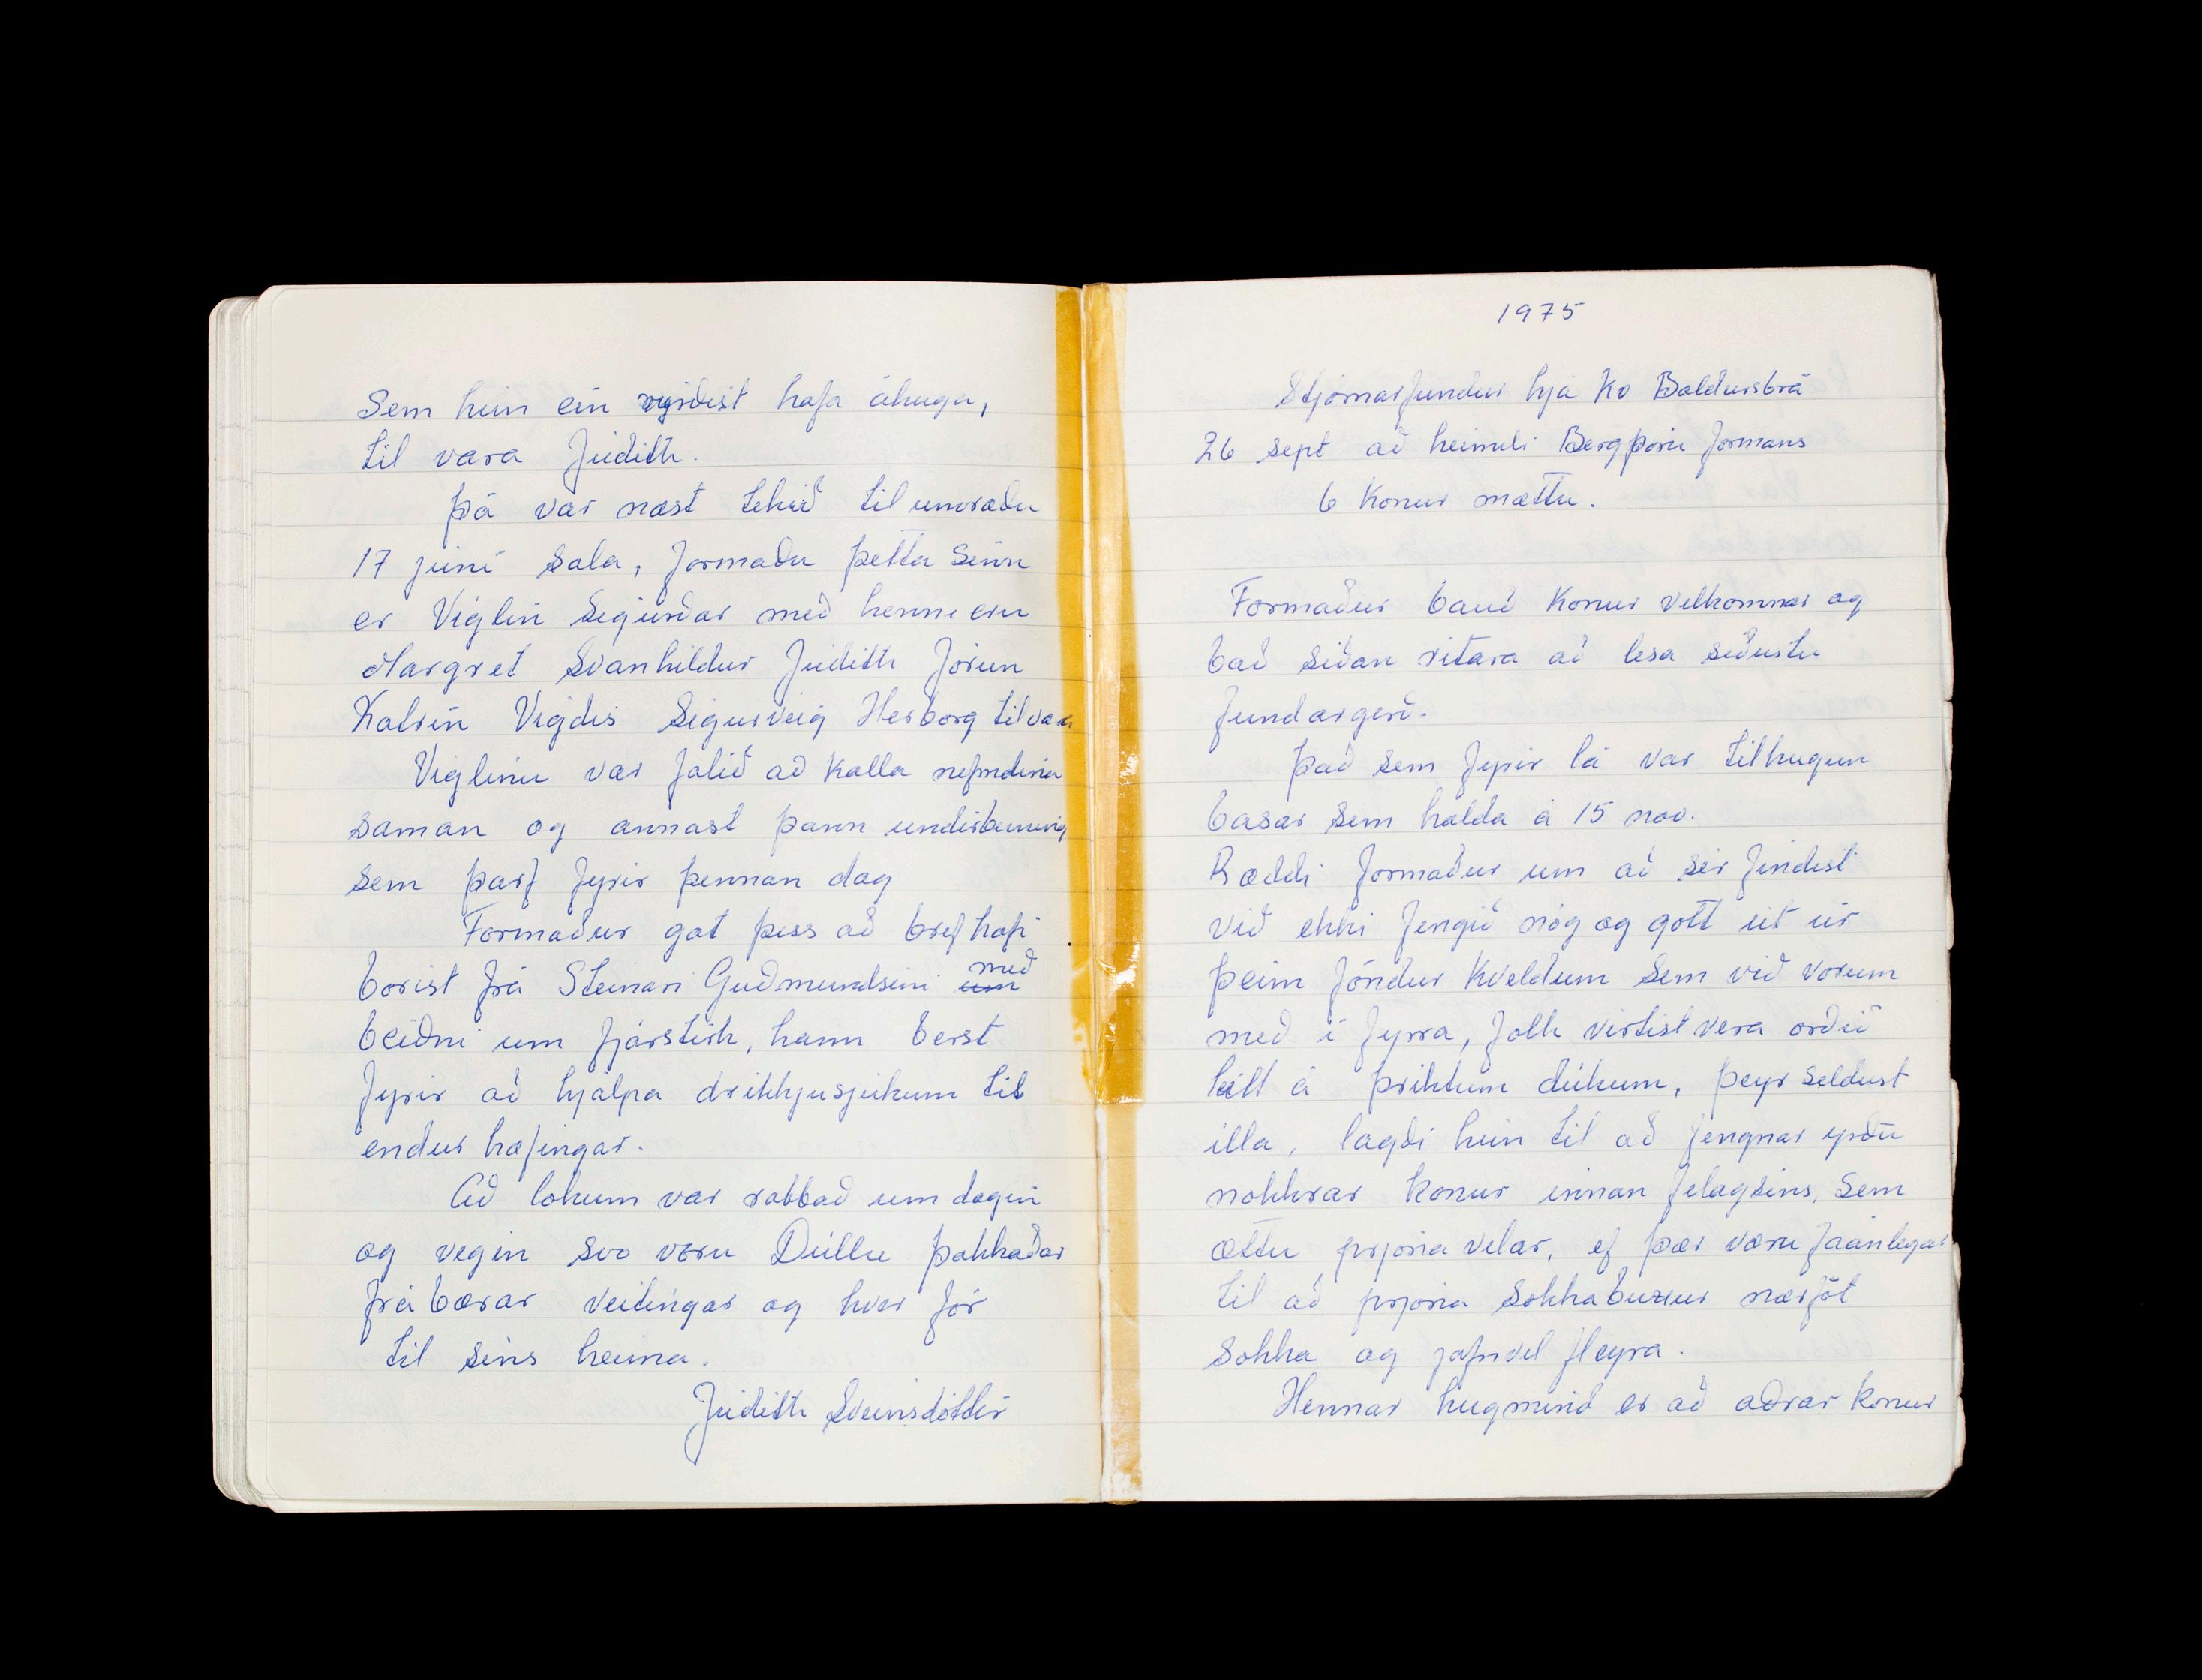 Sem hún ein virðist hafa áhuga,
til vara Júdith.
þá var næst tekið til umræðu
17 júní sala, formaðu þetta sinn
er Víglín Sigurðar með henne eru
Margret Svanhildur Júdith Jórun
Katrín Vigdís Sigurveig Herborg til vara
Víglínu var falið að kalla nefndina
saman og annast þann undirbuning
sem þarf fyrir þennan dag
Formaður gat þess að bref hafi
borist frá Steinari Guðmundsini um með
beiðni um fjárstirk, hann berst
fyrir að hjálpa drikkjusjúkum til
endur hæfingar.
Að lokum var rabbað um dagin
og vegin svo voru Dúllu þakkaðar
frábærar veitingar og hver fór
til síns heima.
Júdith Sveinsdóttir
1975
Stjórnarfundur hjá Kv Baldursbrá
26 sept að heimili Bergþóru formans
6 konur mættu.
Formaður bauð konur velkomnar og
bað siðan ritara að lesa siðustu
fundargerð.
það sem fyrir lá var tilhugun
basar sem halda á 15 nov.
Ræddi formaður um að sér findist
við ekki fengið nóg og gott út úr
þeim föndur kveldum sem við vorum
með í fyrra, folk virtist vera orðið
leitt á þriktum dúkum, þeyr seldust
illa, lagði hún til að fengnar yrðu
nokkrar konur innan felagsins, sem
ættu prjóna velar, ef þær væru fáanlegar
til að prjóna sokkabuxur nærföt
sokka og jafnvel fleyra.
Hennar hugmind er að aðrar konur